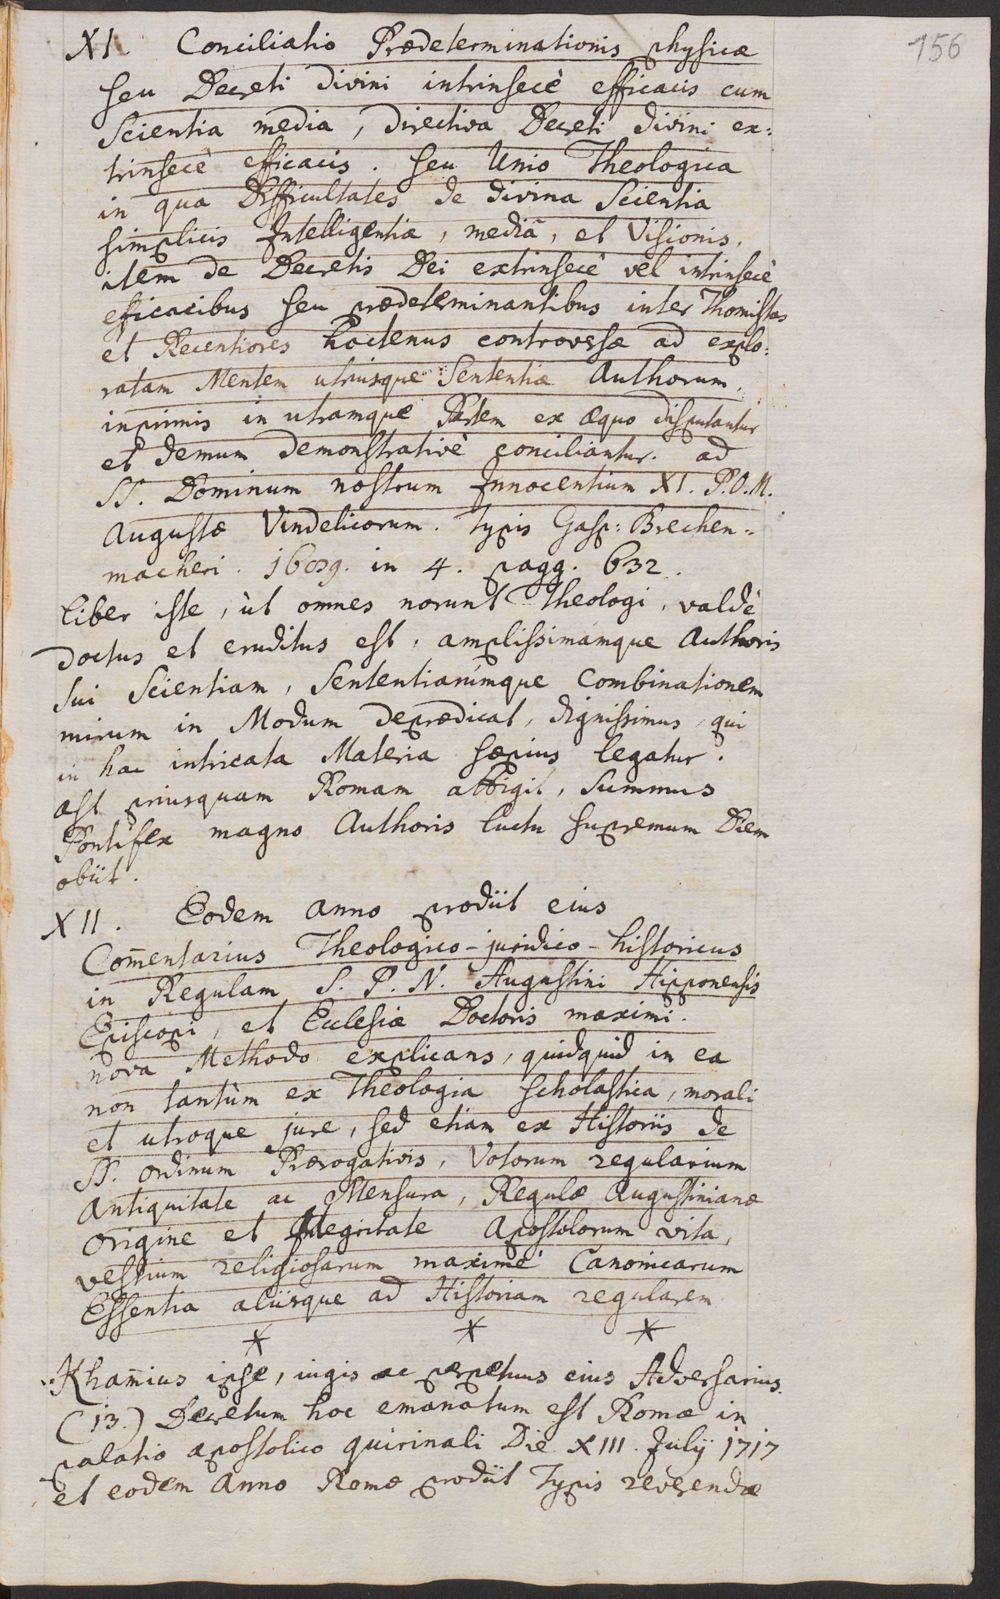 156
XI. Conciliatio Prædeterminationis physicæ
seu Decreti divini intrinsecè efficacis cum
Scientia media, directiva Decreti divini ex:
trinsecè efficacis. seu Unio Theologica
in qua Difficultates de divina Scientia
simplicis Intelligentiæ, mediâ, et Visionis,
item de Decretis Dei extrinsecè vel intrinsecè
eficacibus seu prædeterminantibus inter Thomistas
et Recentiores hactenus controversæ ad explo:
ratam Mentem utriusque Sententiæ Authorum,
inprimis in utramque Partem ex æquo disputantur
et demum demonstrativè conciliantur. ad
SS. Dominum nostrum Innocentium XI. P.O.M.
Augustæ Vindelicorum. typis Gasp: Brechen-
macheri. 1689. in 4. pagg. 632.
liber iste, ùt omnes norunt Theologi, valdè
doctus et eruditus est, amplissimámque Authoris
sui Scientiam, Sententiarúmque Combinationem
mirum in Modum deprædicat, dignissimus, qui
in hac intricata Materia sæpius legatur.
ast priusquam Romam attigit, Summus
Pontifex magno Authoris luctu supremum Diem
obiit.
XII. Eodem anno prodiit eius
Com̄entarius Theologico-juridico-historicus
in Regulam S. P. N. Augustini Hipponensis
Episcopi, et Ecclesiæ Doctoris maximi.
nova Methodo explicans, quidquid in ea
non tantùm ex Theologia scholastica, morali
et utroque jure, sed etiam ex Historiis de
SS. ordinum Prærogativis, Votorum regularium
Antiquitate ac Mensura, Regulæ Augustinianæ
Origine et Integritate Apostolorum vita,
vestium religiosarum maximè Canonicarum
Essentia aliisque ad Historiam regularem
* * *
Kham̄ius ipse, iugis ac perpetuus eius Adversarius.
(13.) Decretum hoc emanatum est Romæ in
palatio apostolico quirinali Die XIII. Julij 1717
et eodem Anno Romæ prodiit Typis reverendæ